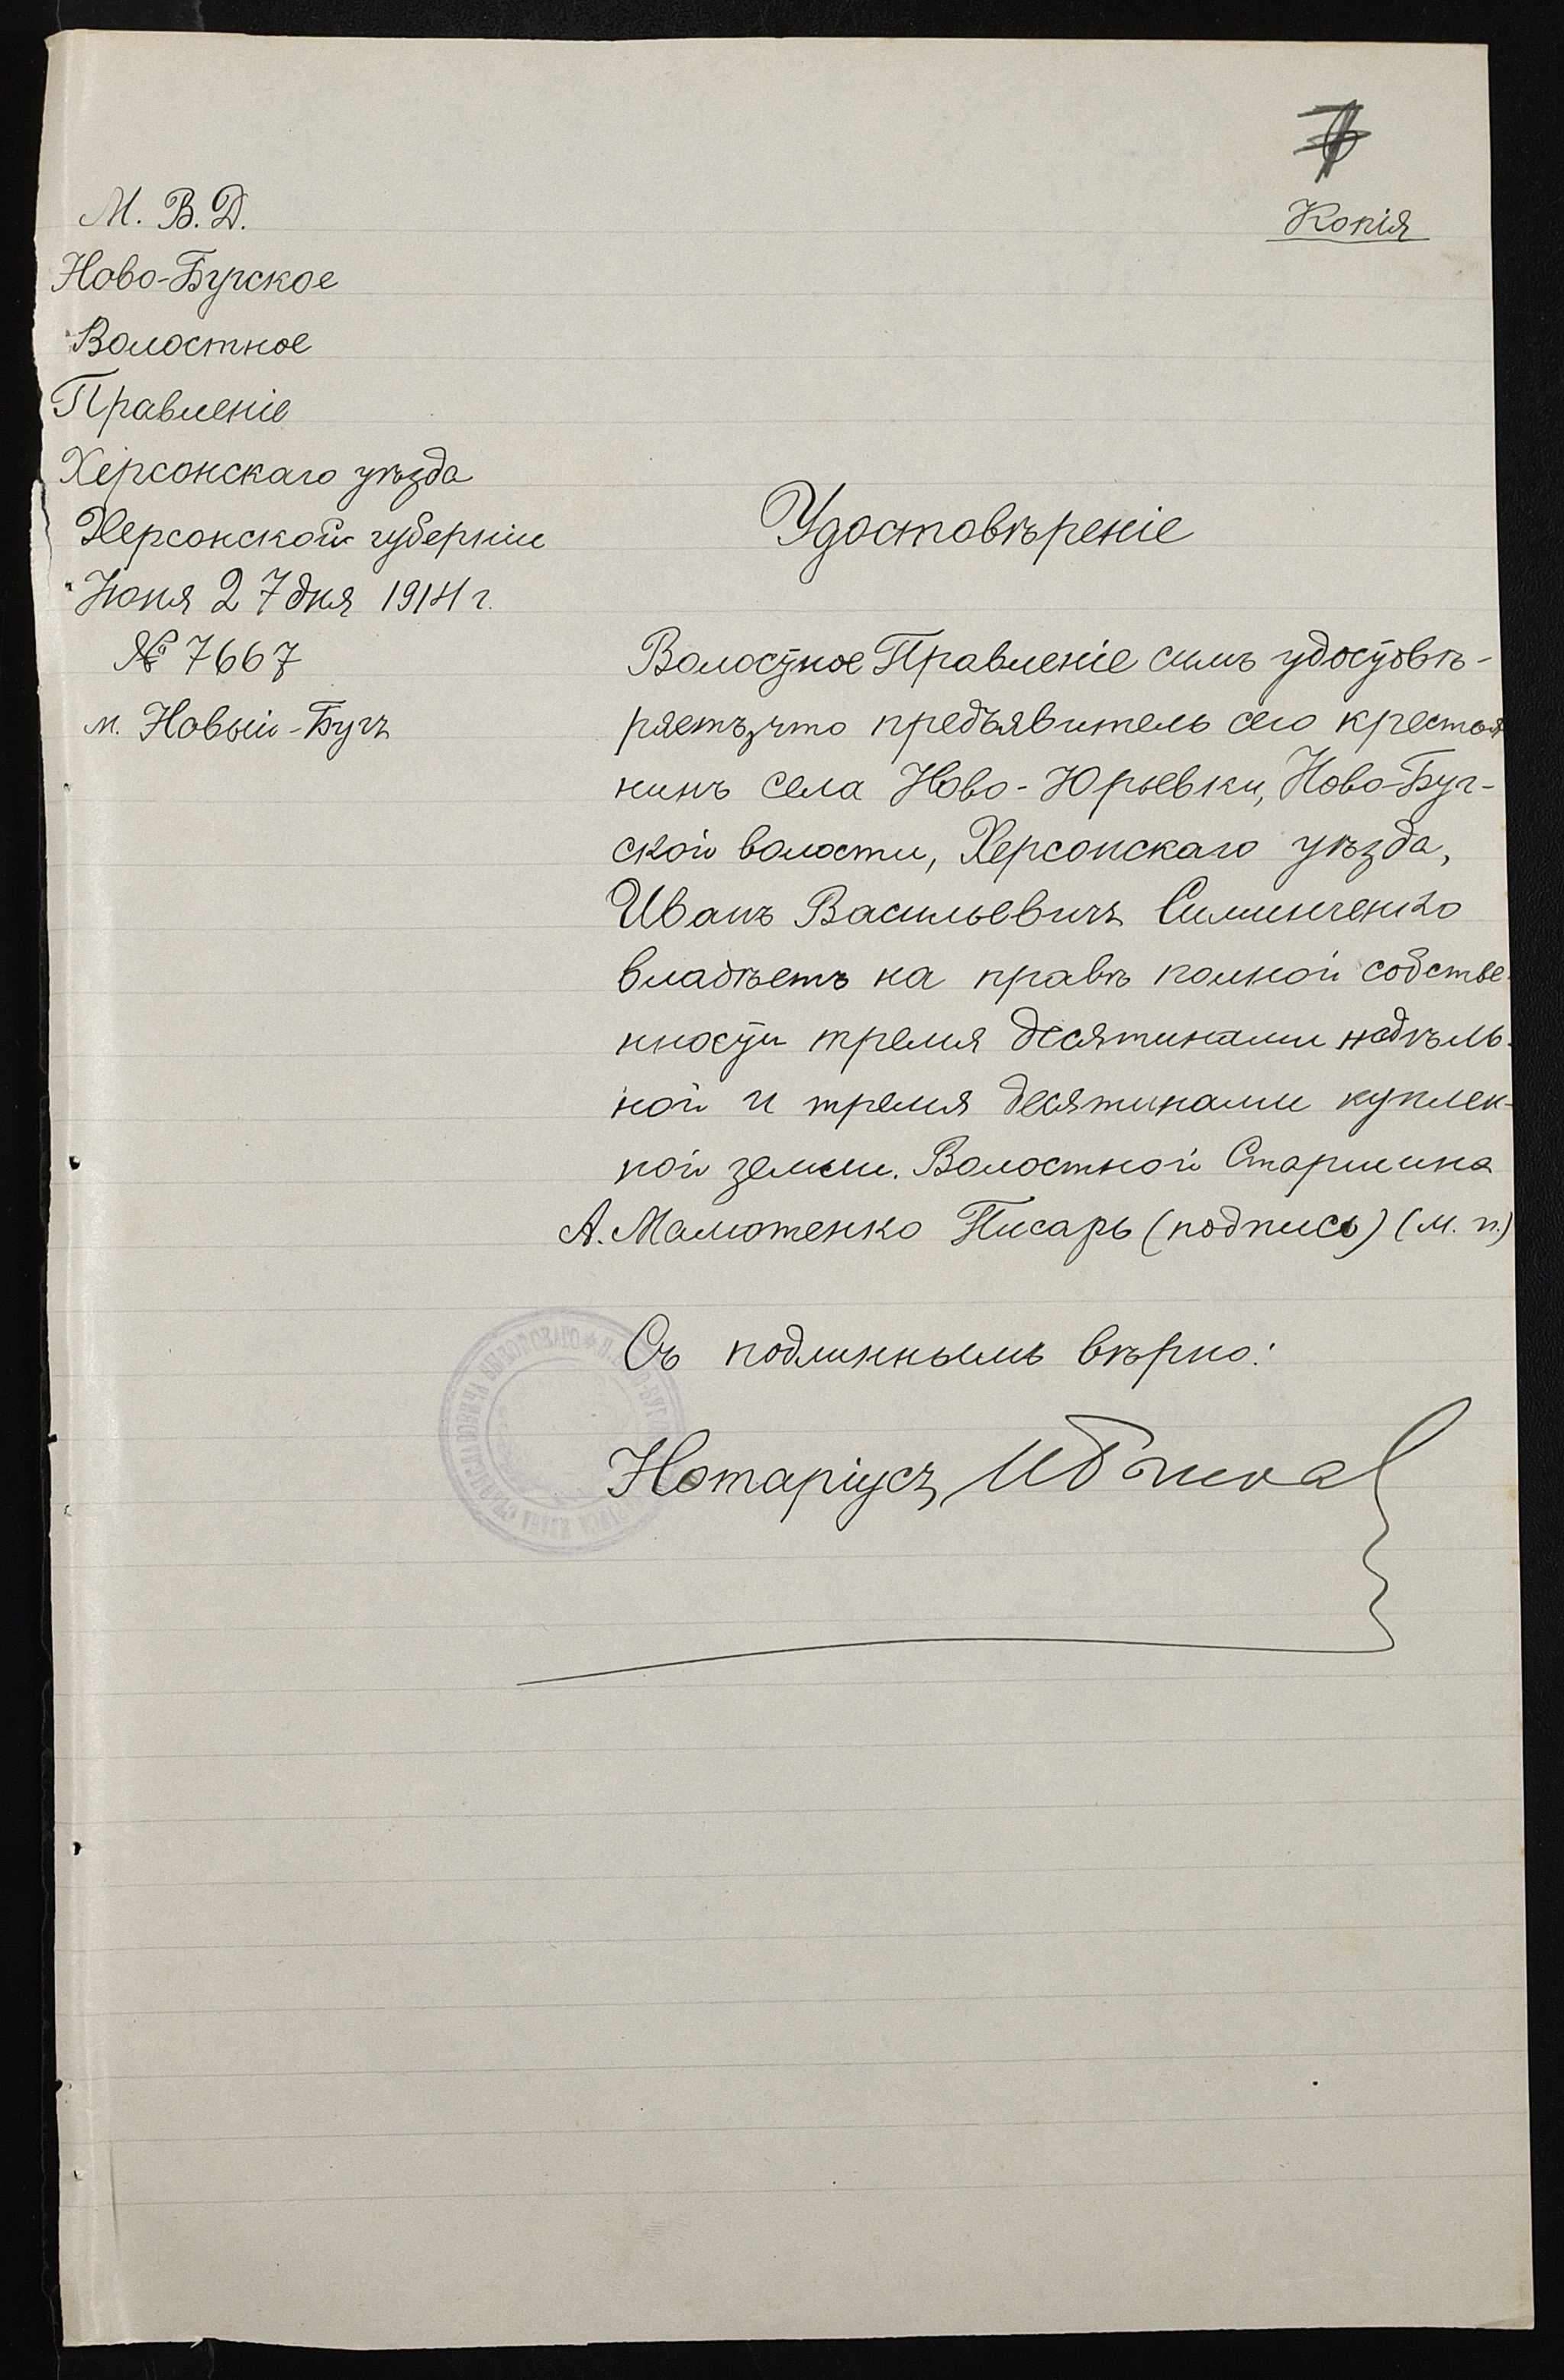 Копія
М. В. Д.
Ново-Бугское
Волостное
Правленіе
Херсонскаго уѣзда
Херсонской губерніи
Іюня 27 дня 1914 г.
№ 7667
м. Новый-Бугъ
Удостовѣреніе
Волостное Правленіе симъ удостовѣ-
ряетъ, что предъявитель сего крестья
нинъ села Ново-Юрьевки, Ново-Буг-
ской волости, Херсонскаго уѣзда,
Иванъ Васильевичъ Силинченко
владѣетъ на правѣ полной собстве-
нности тремя десятинами надѣль-
ной и тремя десятинами куплен-
ной земли. Волостной Старшина
А. Малютенко Писарь (подпись) (м. п.)
Съ подлиннымъ вѣрно:
Нотаріусъ